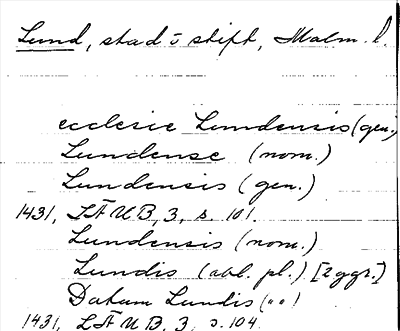 Lund, stad o stift, Malm. l.
ecclesie Lundensis (gen.)
Lundense (nom.)
Lundensis (gen.)
1431, LÄUB, 3, s. 101.
Lundensis (nom.)
Lundis (abl. pl.) [2 ggr.]
Datum Lundis („ „)
1431, LÄUB, 3, s. 104.